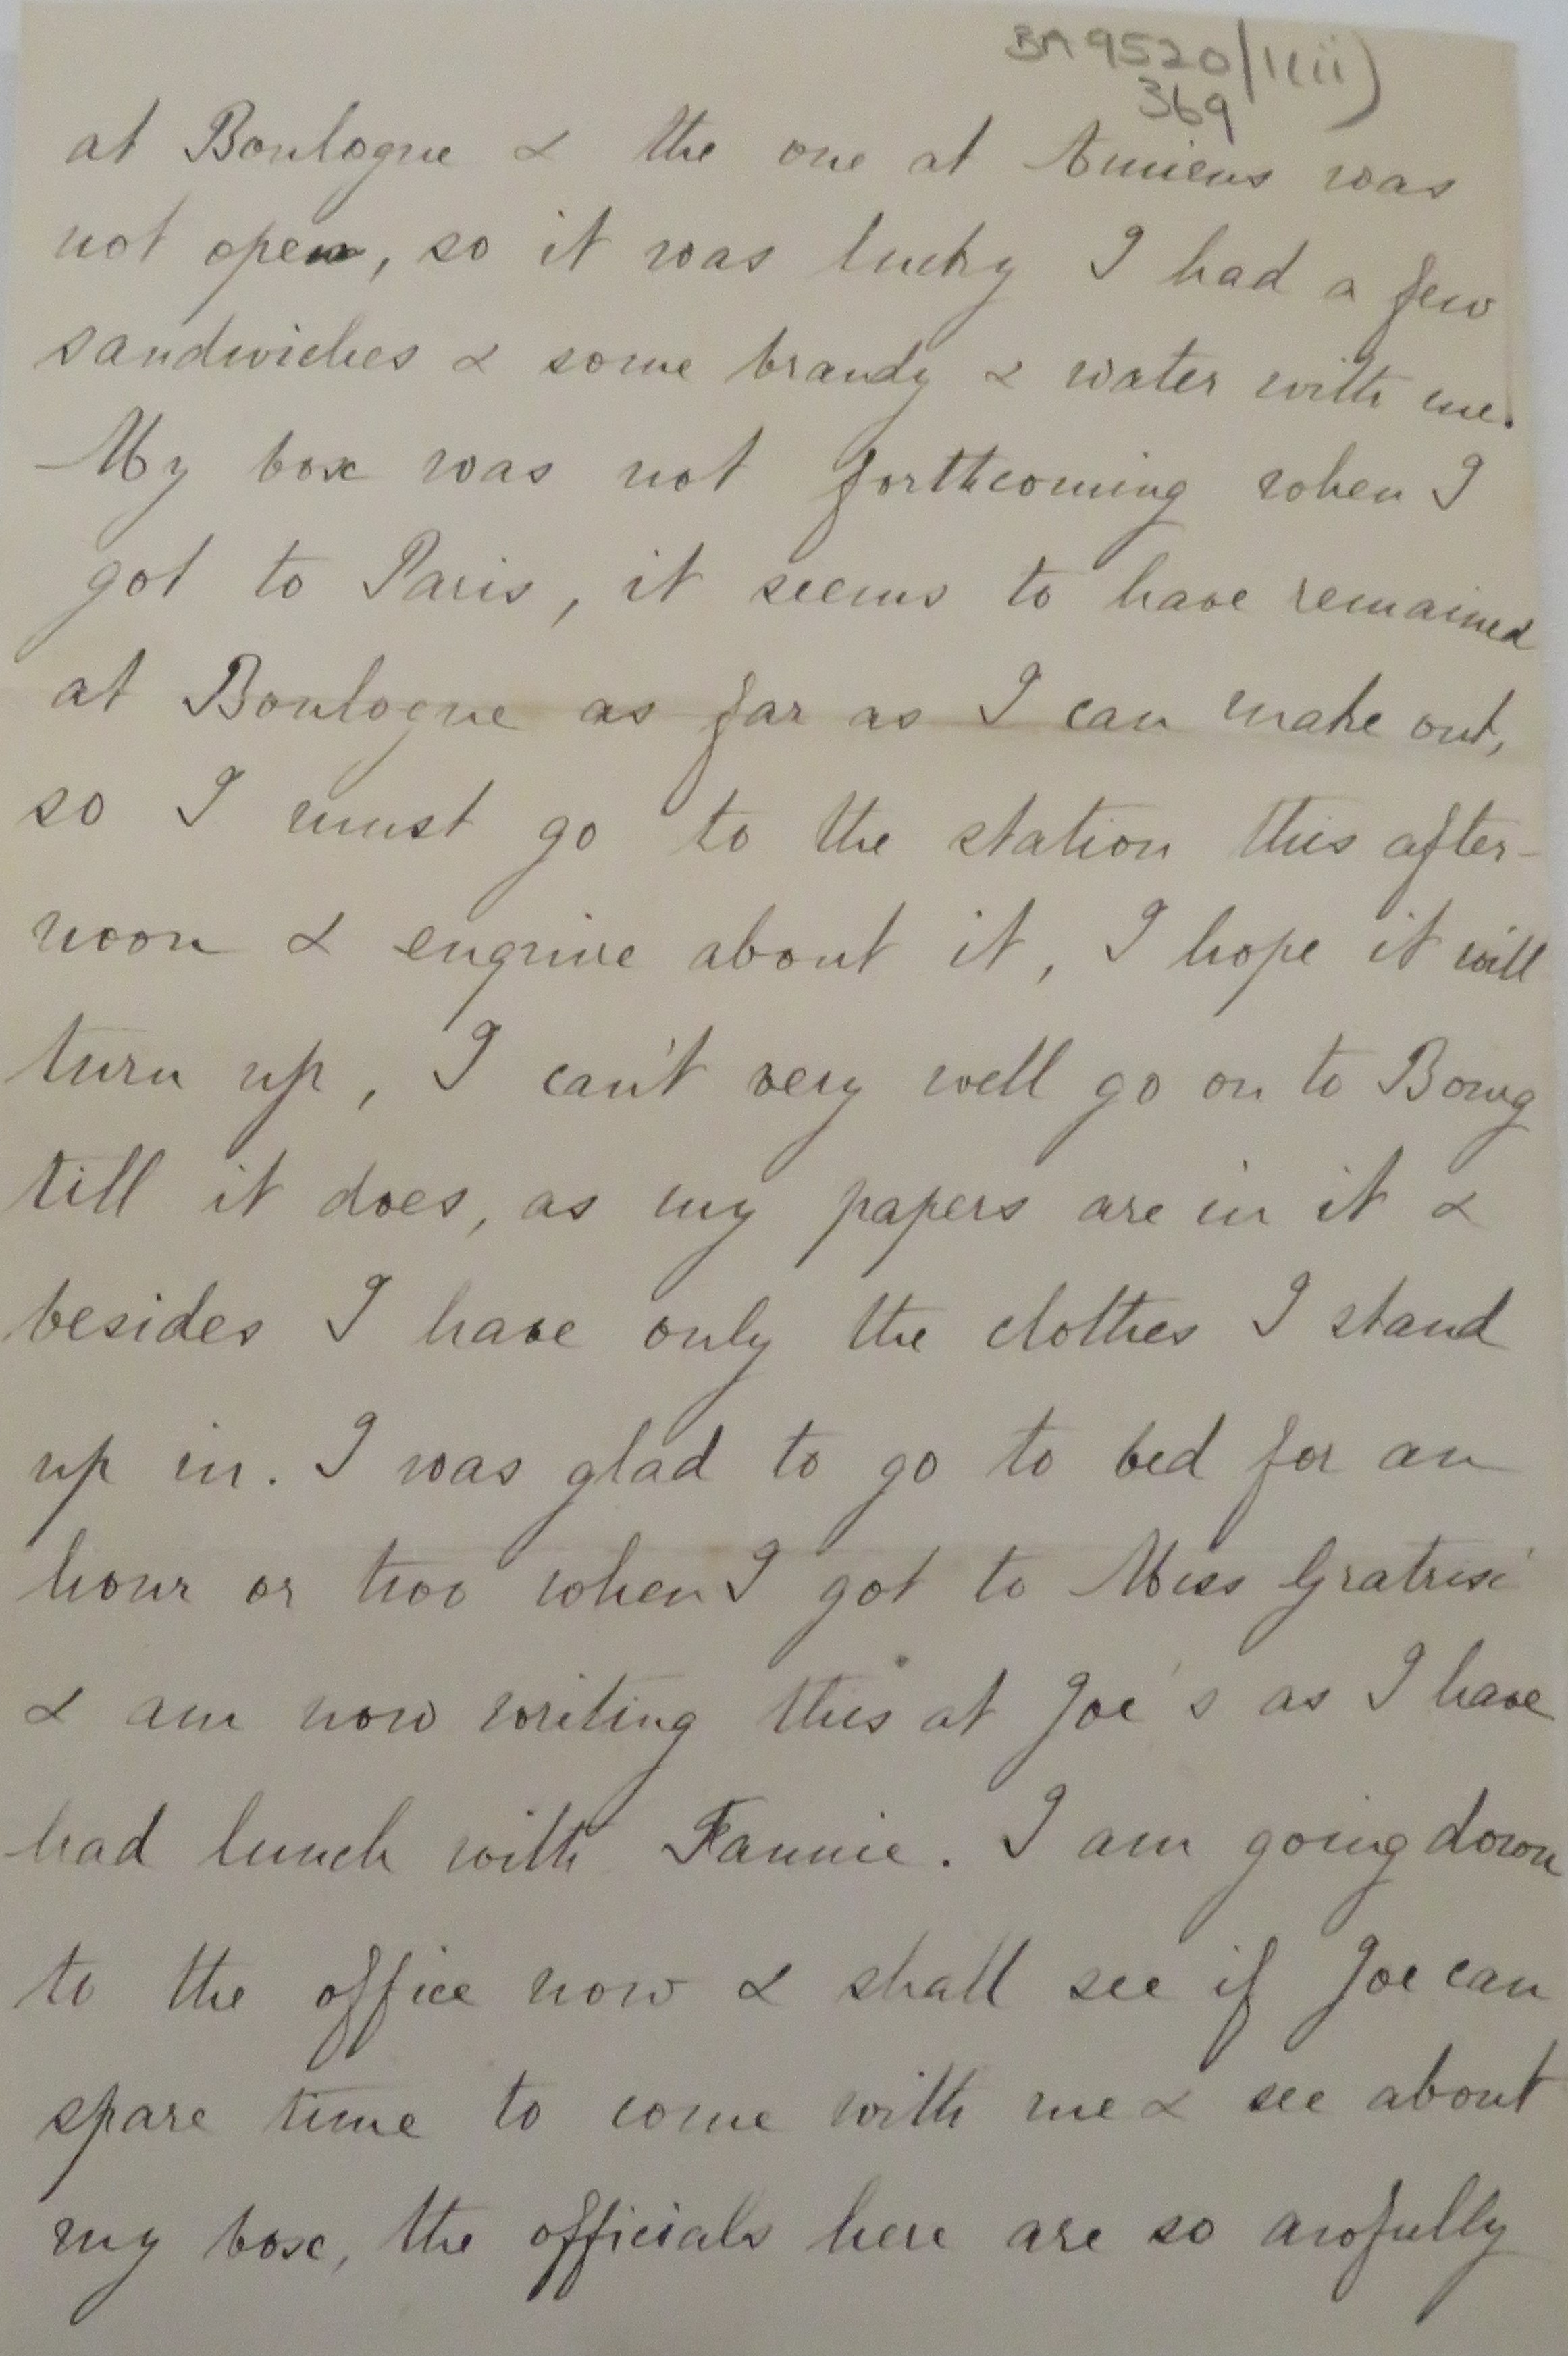 BA 9520/1(ii)
369
at Boulogne & the one at Amiens was
not open, so it was lucky I had a few
sandwiches & some brandy & water with me.
My box was not forthcoming when I
got to Paris, it seems to have remained
at Boulogne as far as I can make out,
so I must go to the station this after-
noon & enquire about it, I hope it will
turn up, I can't very well go on to Bourg
till it does, as my papers are in it &
besides I have only the clothes I stand
up in. I was glad to go to bed for an
hour or two when I got to Miss
& am now writing this at Joe's as I have
had lunch with Fannie. I am going down
to the office now & shall see if Joe can
spare time to come with me & see about
my box, the officials here are so awfully